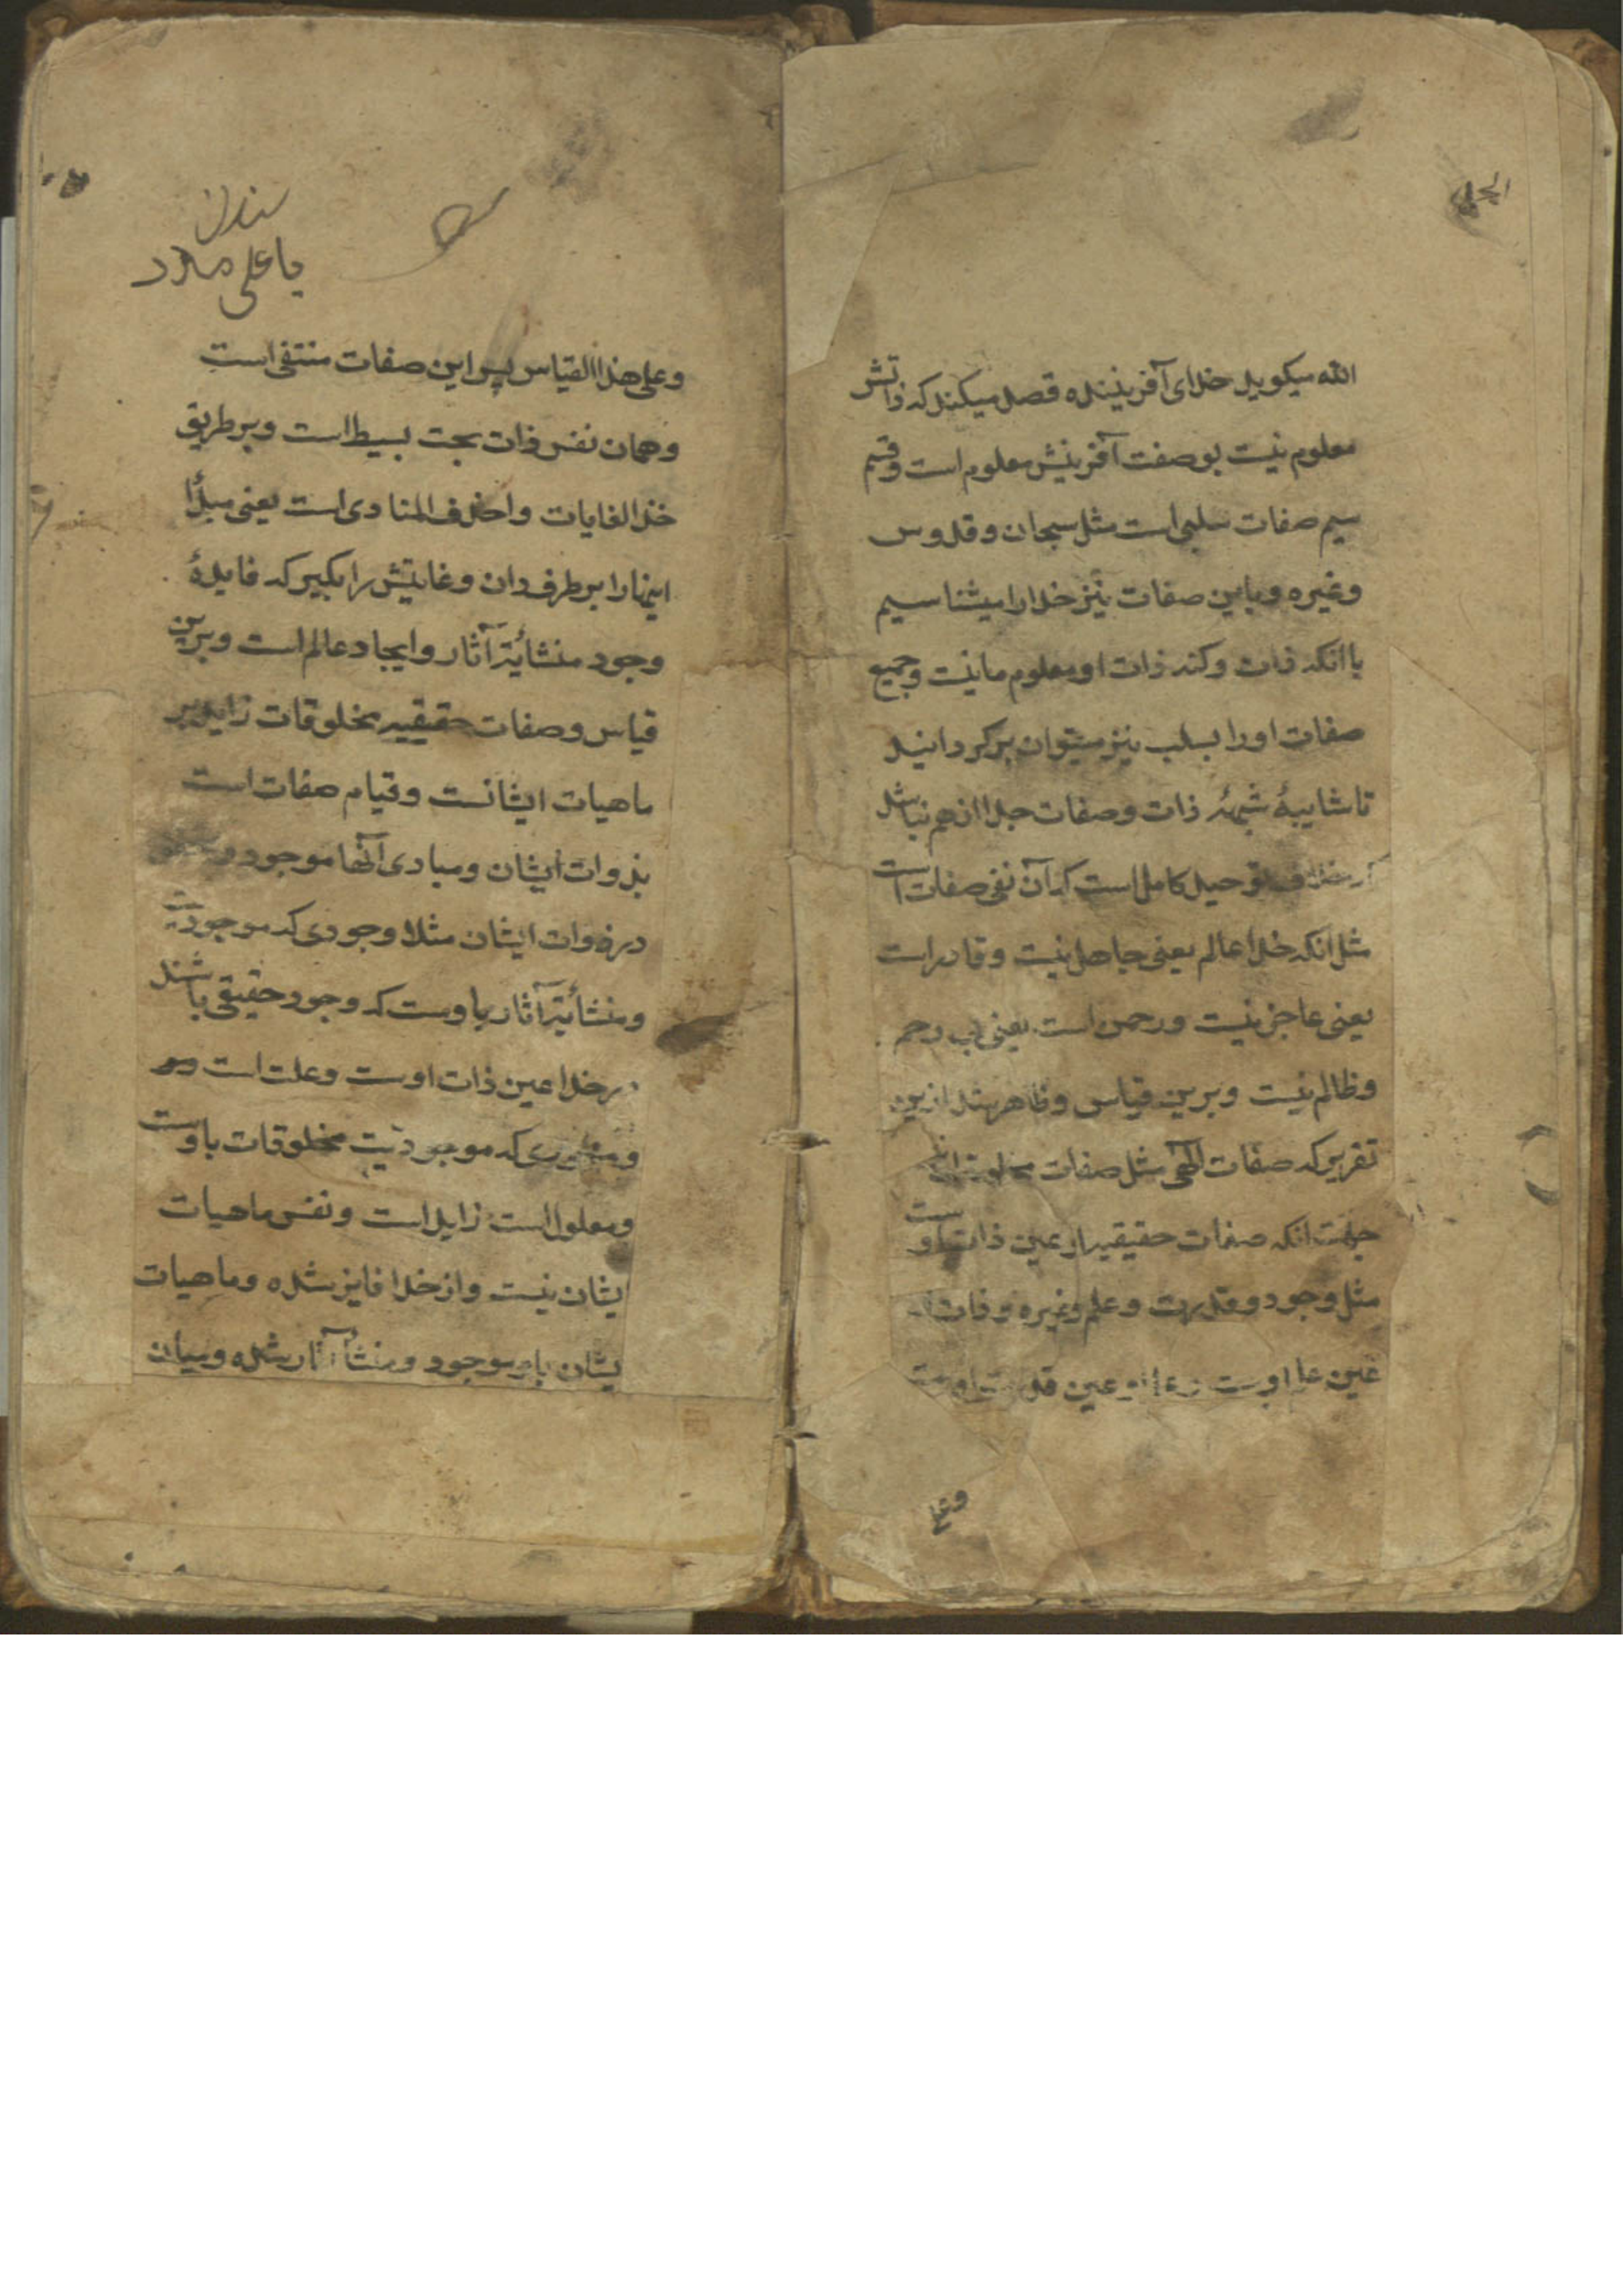 الله میکوید خدای آفریننده قصد میکند که ذاتش
معلوم نیست بوصفت آفرینش معلوم است وقسم
سیم صفات سلبی است مثل سبحان وقدوس
وغیره وباین صفات نیز خدارا میشناسیم
باانکه ذات وکنه ذات او معلوم ما نیست وجمیع
صفات اورا بسلب نیز میتوان برکردانید
تا شایبهٔ شبهه ذات وصفات جدا ازهم نباشد
توحید کامل است که آن نفی صفات است
مثل انکه خدا عالم یعنی جاهل نیست وقادر است
یعنی عاجز نیست ورحمن است یعنی بی رحم
وظالم نیست وبرین قیاس وظاهر شد ازین
تقریر که صفات الهی مثل صفات
جهت انکه صفات حقیقیه او عین ذات اوست
مثل وجود وقدرت وعلم وغیره وذات او
عین علم اوست عین قدرت اوست
وعلی
سندان
یا علی مدد
وعلی هذا القیاس پس این صفات منتفی است
وهمان نفس ذات بحت بسیط است وبر طریق
خذ الغایات واحذف المبادی است یعنی مبدأ
اینهارا بر طرف دان وغایتش را بکیر که فایدهٔ
وجود منشأیّة آثار وایجاد عالم است وبرین
قیاس وصفات حقیقیه مخلوقات زاید بر
ماهیات ایشانست وقیام صفات است
بذوات ایشان ومبادی آنها موجود
در ذوات ایشان مثلا وجودی که موجودیّت
ومنشأیّة آثار باوست که وجود حقیقی باشد
در خدا عین ذات اوست وعلت است
که موجودیّت مخلوقات باوست
ومعلول است زاید است ونفس ماهیات
یشان نیست واز خدا فایز شده وماهیات
یشان باو موجود ومنشأ آثار شده ومیان